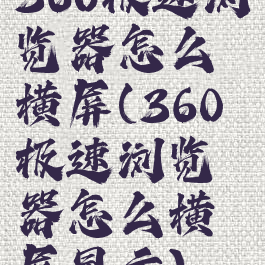 360极速浏
览器怎么
横屏(360
极速浏览
器怎么横
屏显示)